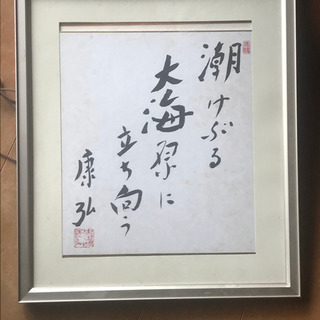 潮けぶる
大海原に
立ち向う
康弘